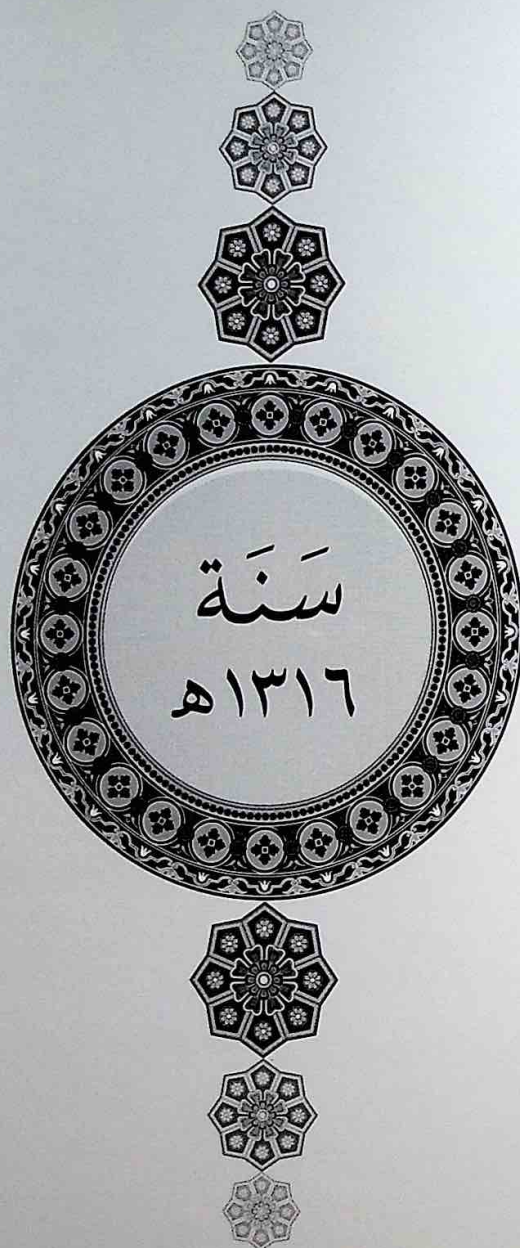 سَنَة
١٣١٦ه